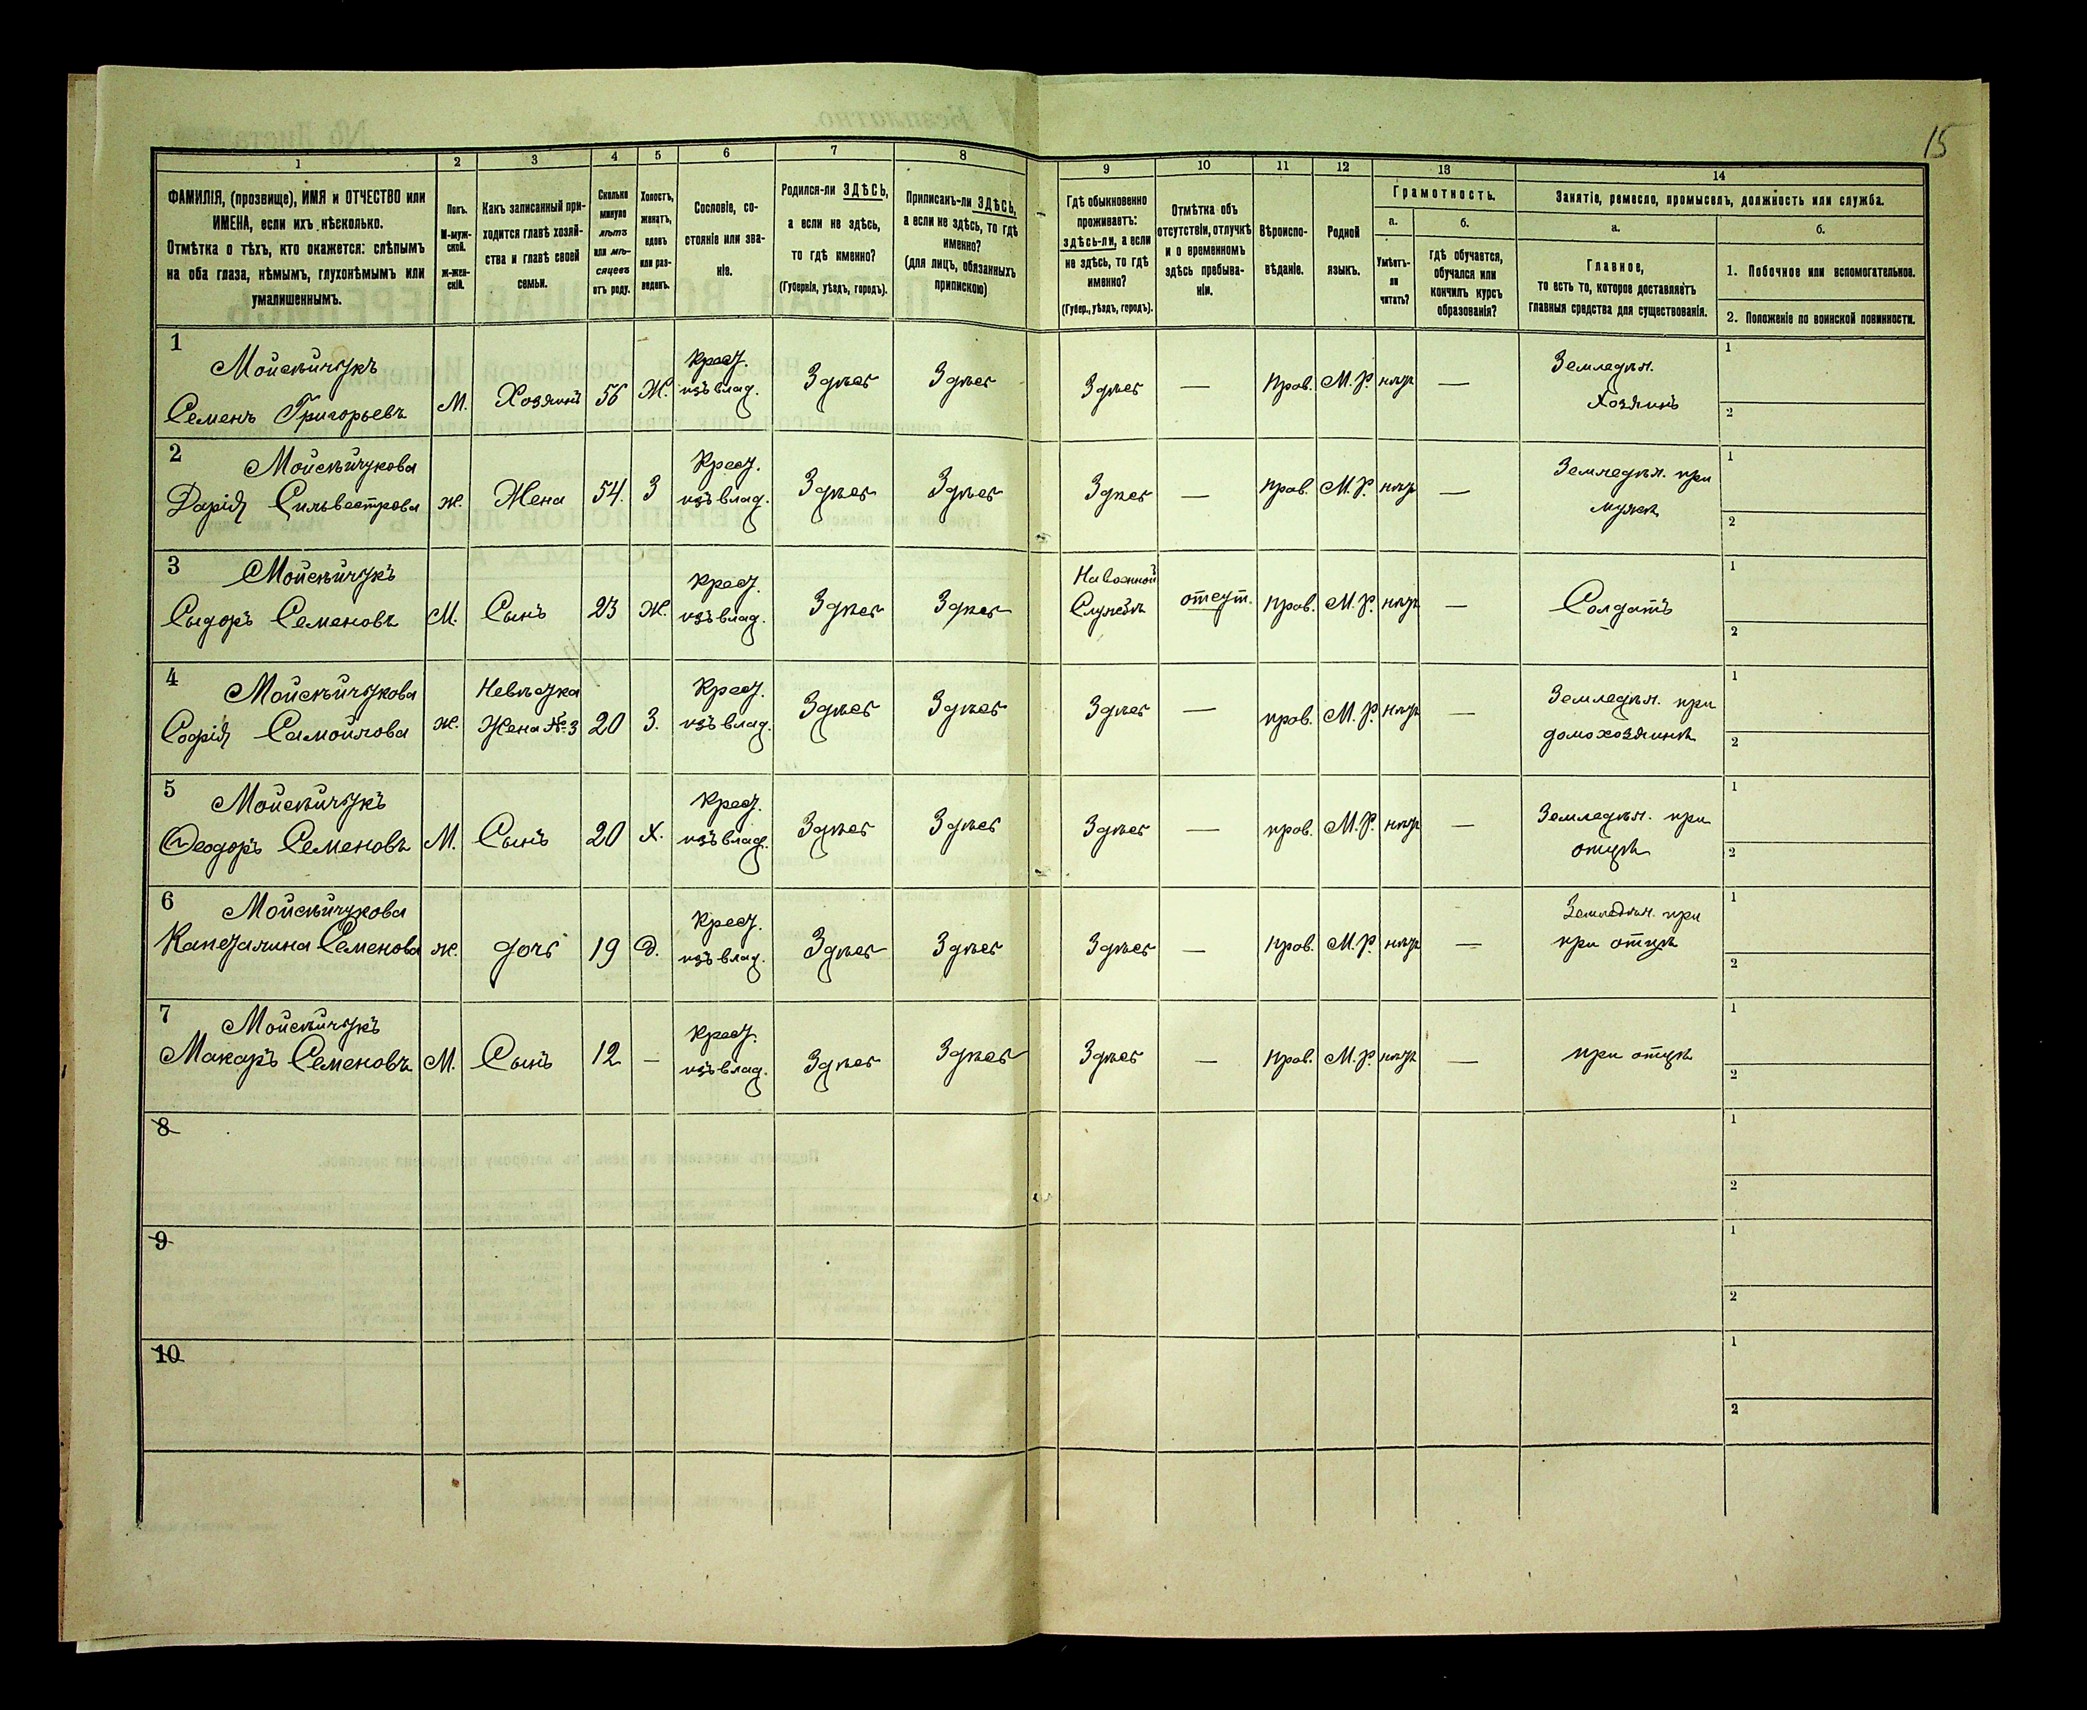 15
1 2 3 4 5 6 7 8 9 10 11 12 13 14
ФАМИЛІЯ, (прозвище), ИМЯ и ОТЧЕСТВО или ИМЕНА, если ихъ нѣсколько.
Отмѣтка о тѣхъ, кто окажется: слѣпымъ на оба глаза, нѣмымъ, глухонѣмымъ или умалишеннымъ.
Полъ. М-мужской. Ж-женскій.
Какъ записанный приходится главѣ хозяйства и главѣ своей семьи.
Сколько минуло лѣтъ или мѣсяцевъ отъ роду.
Холостъ, женатъ, вдовъ или разведенъ.
Сословіе, состояніе или званіе.
Родился-ли ЗДѢСЬ, а если не здѣсь, то гдѣ именно? (Губернія, уѣздъ, городъ).
Приписанъ-ли ЗДѢСЬ, а если не здѣсь, то гдѣ именно? (для лицъ, обязанныхъ припискою)
Гдѣ обыкновенно проживаетъ: здѣсь-ли, а если не здѣсь, то гдѣ именно? (Губер., уѣздъ, городъ).
Отмѣтка объ отсутствіи, отлучкѣ и о временномъ здѣсь пребываніи.
Вѣроисповѣданіе.
Родной языкъ.
Грамотность.
а. Умѣетъ-ли читать?
б. Гдѣ обучается, обучался или кончилъ курсъ образованія?
Занятіе, ремесло, промыселъ, должность или служба.
а. Главное, то есть то, которое доставляетъ главныя средства для существованія.
б.
1. Побочное или вспомогательное.
2. Положеніе по воинской повинности.
1 Мойсѣйчукъ
Семенъ Григорьевъ М. Хозяинъ 56 Ж. Крест. изъ влад. Здѣсь Здѣсь Здѣсь — Прав. М.Р. нѣтъ — Земледѣл. Хозяинъ 1 2
2 Мойсѣйчукова
Дарія Сильвестрова ж. Жена 54. З Крест. изъ влад. Здѣсь Здѣсь Здѣсь — Прав. М.Р. нѣтъ — Земледѣл. при мужѣ 1 2
3 Мойсѣйчукъ
Сыдоръ Семеновъ М. Сынъ 23 Ж. Крест. изъ влад. Здѣсь Здѣсь На военной Службѣ отсут. Прав. М.Р. нѣтъ — Солдатъ 1 2
4 Мойсѣйчукова
Софія Самойлова ж. Невѣстка Жена №3 20 З. Крест. изъ влад. Здѣсь Здѣсь Здѣсь — прав. М.Р. нѣтъ — Земледѣл. при домохозяинѣ 1 2
5 Мойсѣйчукъ
Ѳеодоръ Семеновъ М. Сынъ 20 Х. Крест. изъ влад. Здѣсь Здѣсь Здѣсь — прав. М.Р. нѣтъ — Земледѣл. при отцѣ 1 2
6 Мойсѣйчукова
Капеталина Семенова ж. дочь 19 Д. Крест. изъ влад. Здѣсь Здѣсь Здѣсь — Прав. М.Р. нѣтъ — Земледѣл. при при отцѣ 1 2
7 Мойсѣйчукъ
Макаръ Семеновъ М. Сынъ 12 — Крест. изъ влад. Здѣсь Здѣсь Здѣсь — Прав. М.Р. нѣтъ — при отцѣ 1 2
8 1 2
9 1 2
10 1 2